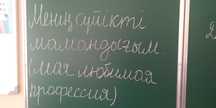 Менің сүйікті
мамандығым
(моя любимая
профессия)